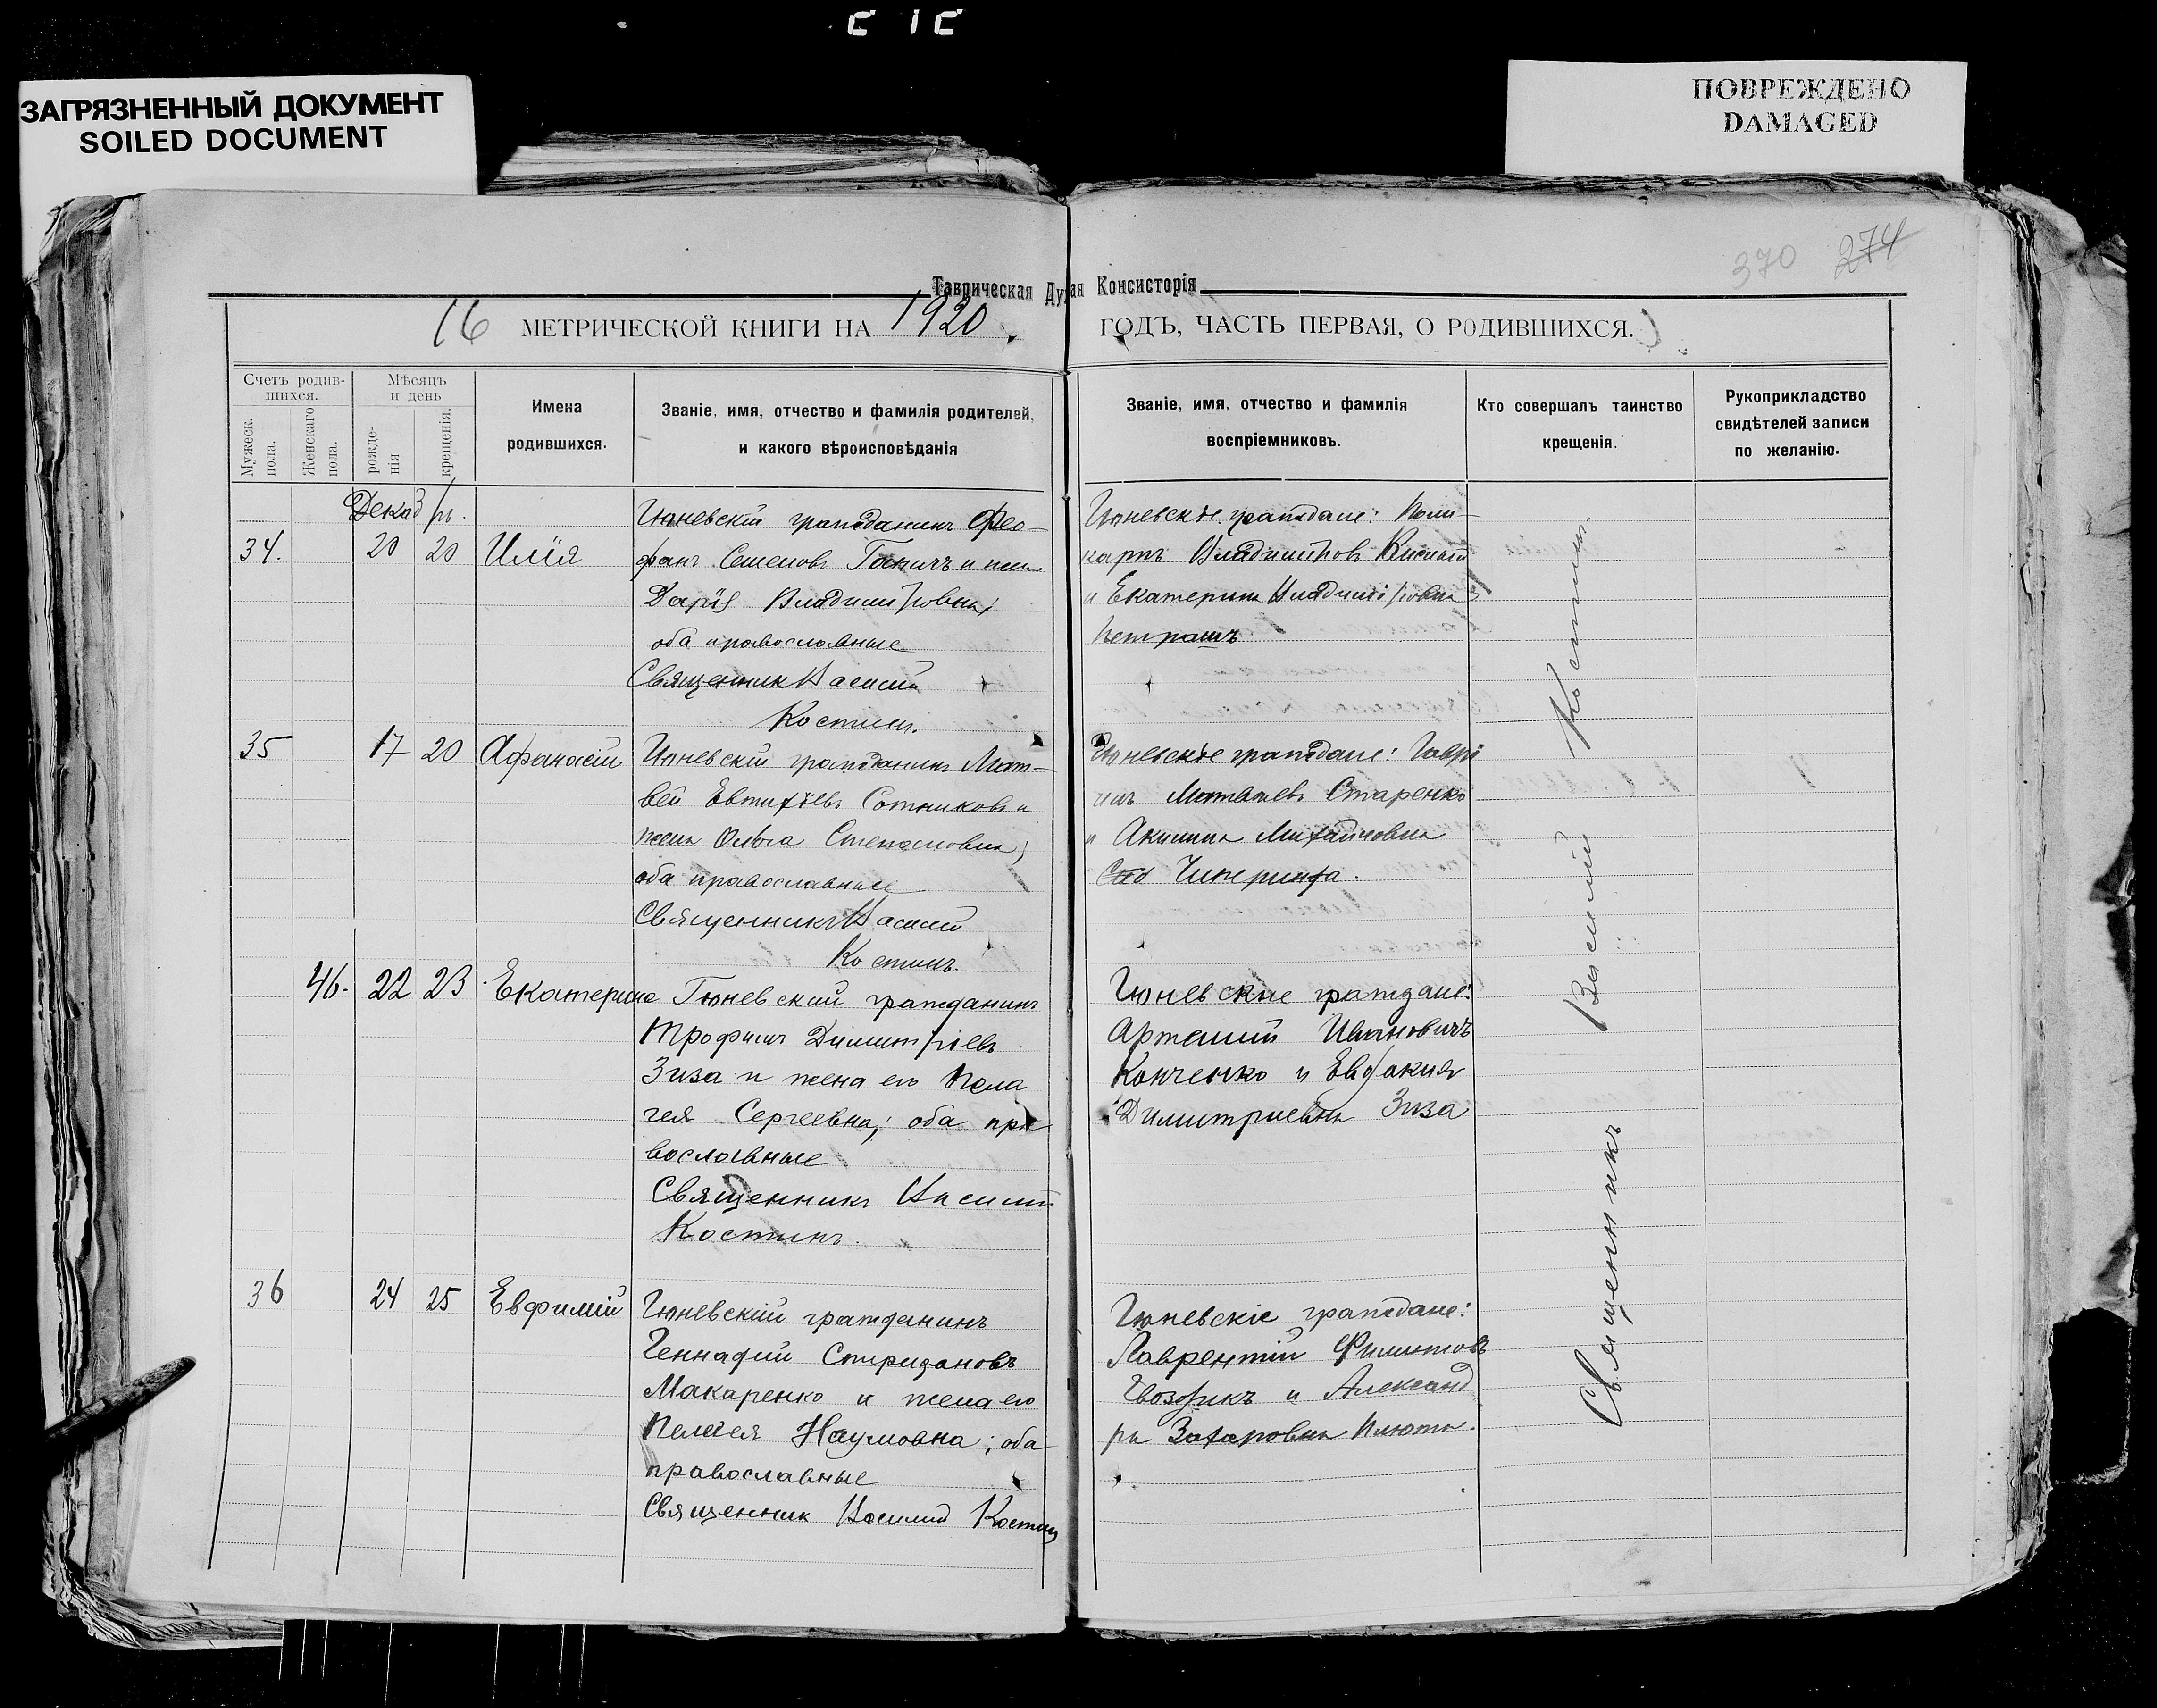 ЗАГРЯЗНЕННЫЙ ДОКУМЕНТ
SOILED DOCUMENT
ПОВРЕЖДЕНО
DAMAGED
370 274
Таврическая Ду ая Консисторія
16 МЕТРИЧЕСКОЙ КНИГИ НА 1920
ГОДЪ, ЧАСТЬ ПЕРВАЯ, О РОДИВШИХСЯ.
Счетъ родив-
шихся.
Мужеск.
пола.
Женскаго
пола.
Мѣсяцъ
и день
рожде-
нія
крещенія.
Имена
родившихся.
Званіе, имя, отчество и фамилія родителей,
и какого вѣроисповѣданія
Званіе, имя, отчество и фамилія
воспріемниковъ.
Кто совершалъ таинство
крещенія.
Рукоприкладство
свидѣтелей записи
по желанію.
Декабрь.
34. 20 20 Илія
Гюневскій гражданинъ Фео-
фанъ Семеновъ и жен.
Дарія Владиміровна;
оба православные
Священник Василій
Костинъ.
Гюневскіе граждане: Поли-
карпъ Владиміровъ
и Екатерина Владиміровна
Петрашъ
35 17 20 Афанасій
Гюневскій гражданинъ Мат-
вей Евтихіевъ Сотниковъ и
жена Ольга Степановна;
оба православные
Священникъ Василій
Костинъ.
Гюневскіе граждане: Гаврі
илъ Матвѣевъ Старенко
и Акилина Михайловна
Чикеринда.
46. 22 23 Екатерина
Гюневский гражданинъ
Трофимъ Димитріевъ
Зиза и жена его Пела
гея Сергеевна; оба пра
вославные
Священникъ Василій
Костинъ.
Гюневские граждане:
Артемий Ивановичъ
Конченко и Евдокия
Димитриевна Зиза
36 24 25 Евфимій
Гюневскій гражданинъ
Геннадий Спиридоновъ
Макаренко и жена его
Пелагея Наумовна; оба
православные
Священник Василий Костин
Гюневскіе граждане:
Лаврентій Филиповъ
Гвоздикъ и Александ
ра Захаровна Плюта.
Священникъ Василій Костинъ.